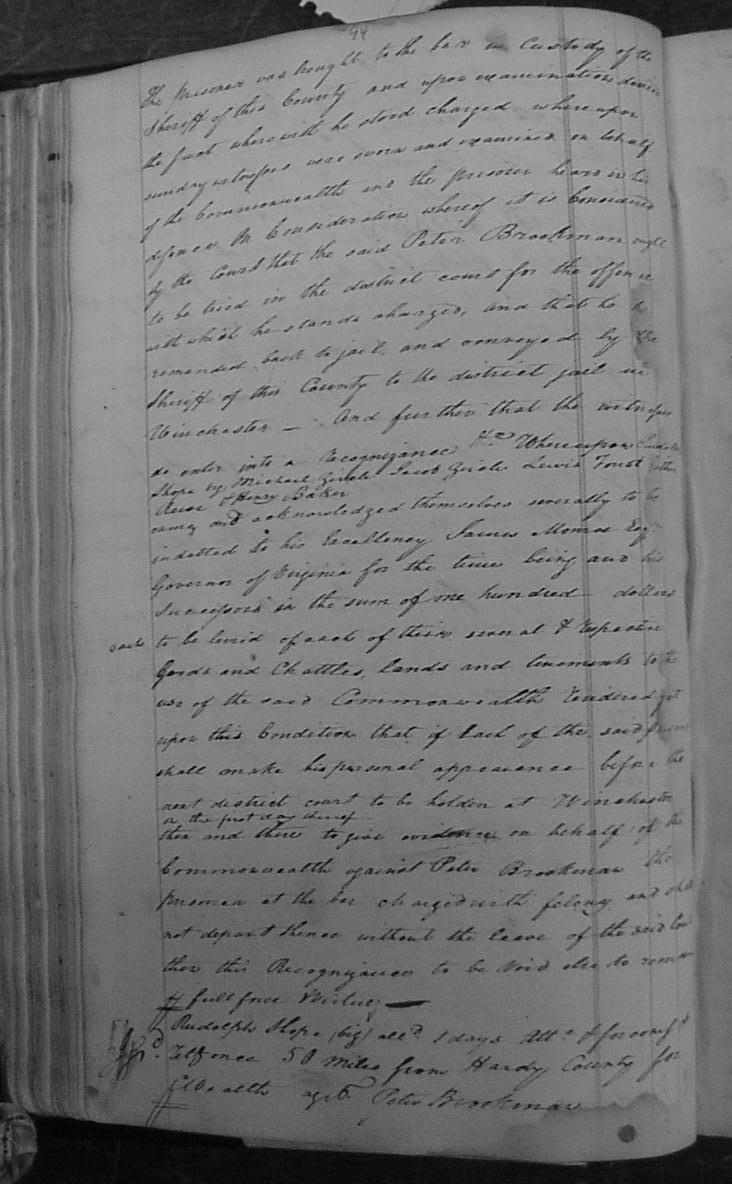 94
The prisoner was brought to the bar in Custody of the
Sheriff of this County and upon examination denies
the fact wherewith he stood charged whereupon
sunday witnesses were sworn and examined on behalf
of the Commonwealth and the prisoner heard in his
defence In Consideration whereof it is Considered
by the Court that the said Peter Brookman ought
to be tried in the district court for the offence
with which he stands charged, and that he be
remanded back to jail, and conveyed by the
Sheriff of this County to the district jail in
Winchester — And further that the witnesses
do enter into a Recognizance &c Whereupon Rudolph
Shope Michael Jacob Lewis Foust
Henry Baker
came and acknowledged themselves severally to be
indetted to his Excellency James Monroe Esqr
Governor of Virginia for the time being and his
Successors in the sum of one hundred dollars
each to be levied of each of theirs several & respective
Goods and Chattles, lands and tenements to the
use of the said Commonwealth Rendered yet
upon this Condition that if Each of the said
shall make his personal appearance before the
next district court to be holden at Winchester
on the first day thereof
then and there to give evidence on behalf of the
Commonwealth against Peter Brookman the
prisoner at the bar charged with felony and shall
not depart thence without the leave of the said Court
then this Recognizance to be Void else to remain
full force & Virtue —
Rudolph Shope (big) alld. 1 days Attc. &
once 50 Miles from Hardy County for
C Wealth agst. Peter Brookman